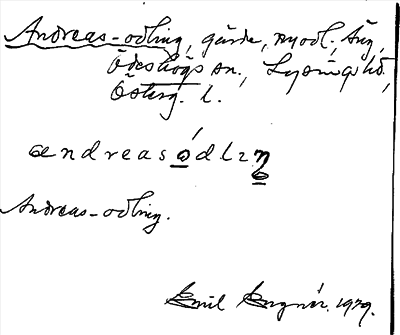 Andreas-odling, gärde, nyodl., äng,
Ödeshögs sn., Lysings hd.,
Österg. l.
andreasódlıŋ
Andreas-odling.
Emil 1929.